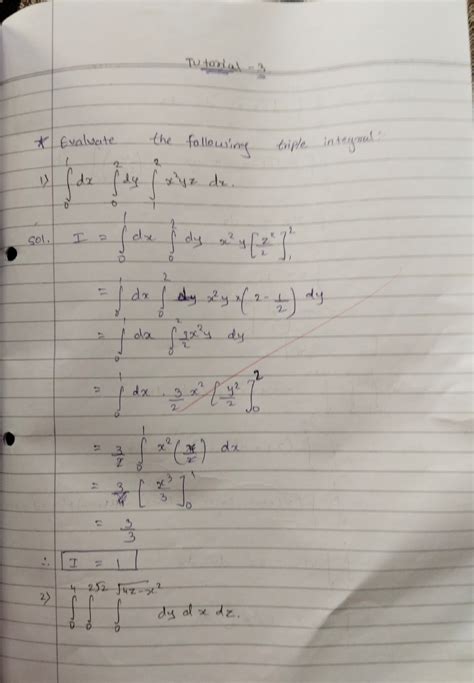 Tutorial - 3
* Evaluate the following triple integral:
1) ∫₀¹ dx ∫₀² dy ∫₁² x²yz dx.
Sol. I = ∫₀¹ dx ∫₀² dy x²y [z²/2]₁²
= ∫₀¹ dx ∫₀² x²y × (2 - 1/2) dy
= ∫₀¹ dx ∫₀² 3/2 x²y dy
= ∫₀¹ dx · 3/2 x² [y²/2]₀²
= 3/2 ∫₀¹ x² (4/2) dx
= 3 [x³/3]₀¹
= 3/3
∴ I = 1
2) ∫₀⁴ ∫₀^2√z ∫₀^√4z-x² dy dx dz.